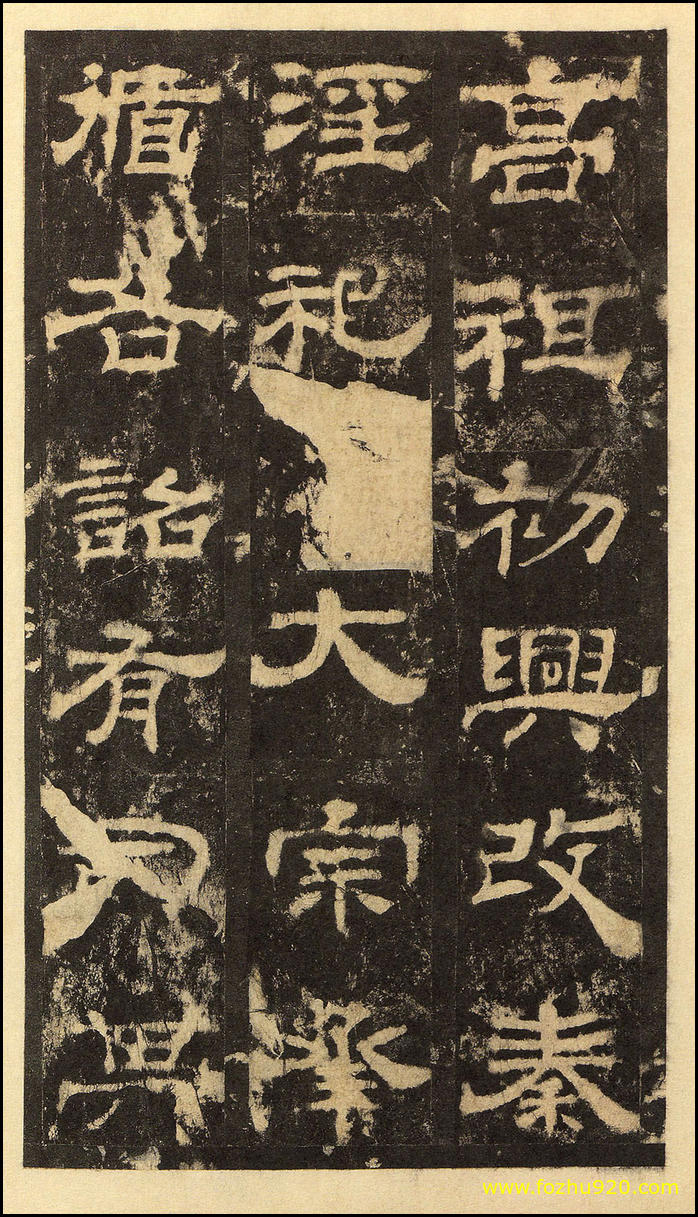 高祖初興改秦
淫祀大宗承
循各詔有司其
www.fozhu920.com